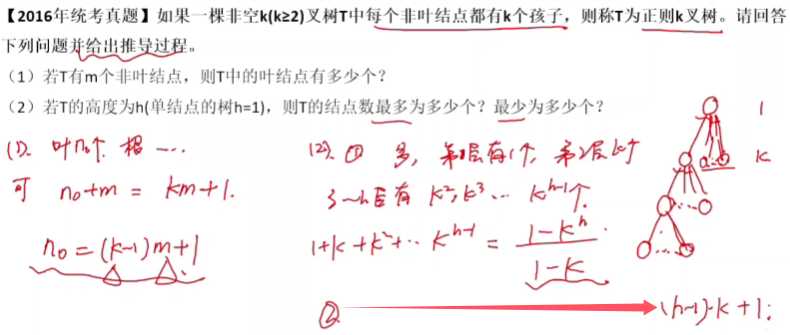 【2016年统考真题】如果一棵非空k(k≥2)叉树T中每个非叶结点都有k个孩子，则称T为正则k叉树。请回答
下列问题并给出推导过程。
（1）若T有m个非叶结点，则T中的叶结点有多少个？
（2）若T的高度为h(单结点的树h=1)，则T的结点数最多为多少个？最少为多少个？
(1). 叶n₀个.
可 n₀+m = km+1.
n₀=(k-1)m+1
(2). ① 多, 第1层有1个, 第2层k个
3~h层有 k²,k³... k^{h-1}个.
1+k+k²+... k^{h-1} = \frac{1-k^h}{1-k}.
1
k
② (h-1)·k+1;